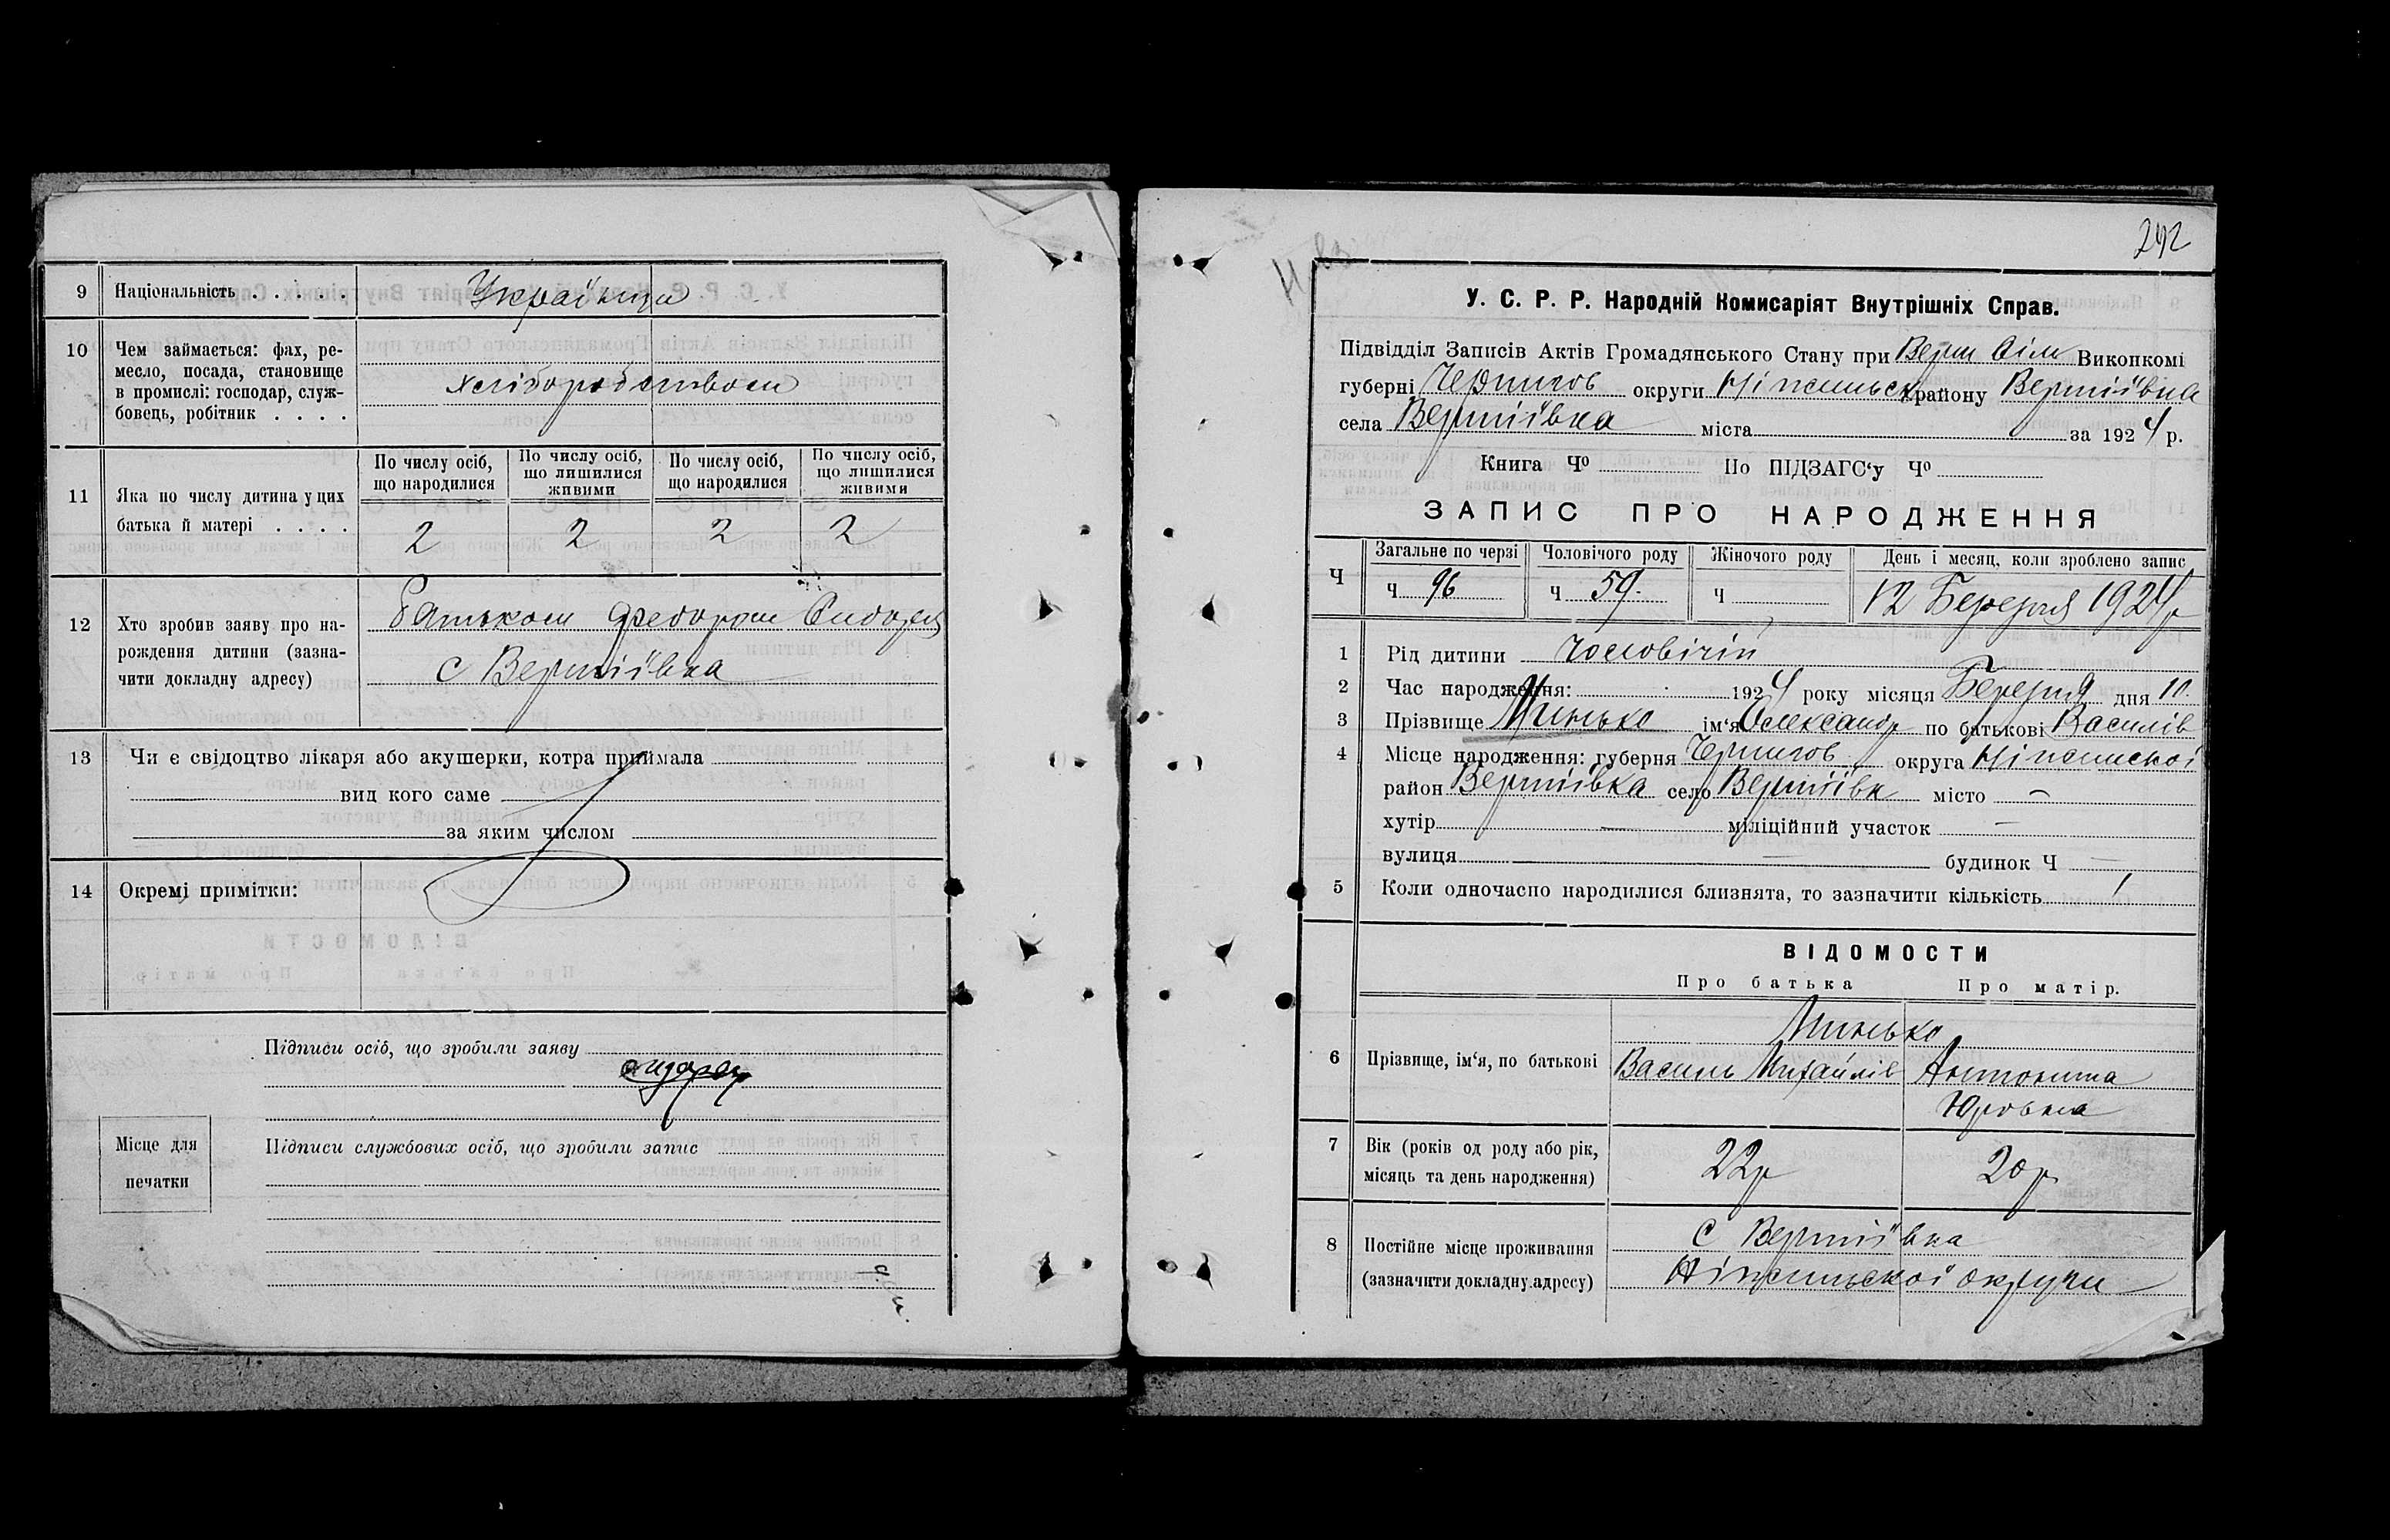 9 Національність . . . . . Українци
10 Чем займається: фах, ре-
месло, посада, становище
в промислі: господар, служ-
бовець, робітник . . . .
хліборобством
11 Яка по числу дитина у цих
батька й матері . . . .
По числу осіб, що народилися
По числу осіб, що лишилися живими
По числу осіб, що народилися
По числу осіб, що лишилися живими
2 2 2 2
12 Хто зробив заяву про на-
рождення дитини (зазна-
чити докладну адресу)
Батьком Федором
с Вертіївка
13 Чи є свідоцтво лікаря або акушерки, котра приймала
вид кого саме
за яким числом
14 Окремі примітки:
Підписи осіб, що зробили заяву
Місце для
печатки
Підписи службових осіб, що зробили запис
242
У. С. Р. Р. Народній Комисаріят Внутрішніх Справ.
Підвідділ Записів Актів Громадянського Стану при Верт Сіль Викопкомі
губерні Чернигов округи Ніженьск району Вертіївка
села Вертіївка міста за 1924 р.
Книга Чо По ПІДЗАГС‘у Чо
ЗАПИС ПРО НАРОДЖЕННЯ
Ч Загальне по черзі Чоловічого роду Жіночого роду День і месяц, коли зроблено запис
Ч 96 Ч 59. Ч 12 Березня 1924 р
1 Рід дитини Чоловічій
2 Час народження: 1924 року місяця Березня дня 10.
3 Прізвище Минько ім‘я Олександр по батькові Василів
4 Місце народження: губерня Чернигов округа Ніженскої
район Вертіївка село Вертіївк місто —
хутір — міліційний участок —
вулиця — будинок Ч —
5 Коли одночасно народилися близнята, то зазначити кількість 1
ВІДОМОСТИ
Про батька Про матір.
6 Прізвище, ім‘я, по батькові
Минько
Василь Михайлів Антонина
Юровна
7 Вік (років од роду або рік,
місяць та день народження)
22р 20р.
8 Постійне місце проживання
(зазначити докладну адресу)
с Вертіївка
Ніженьскої округи